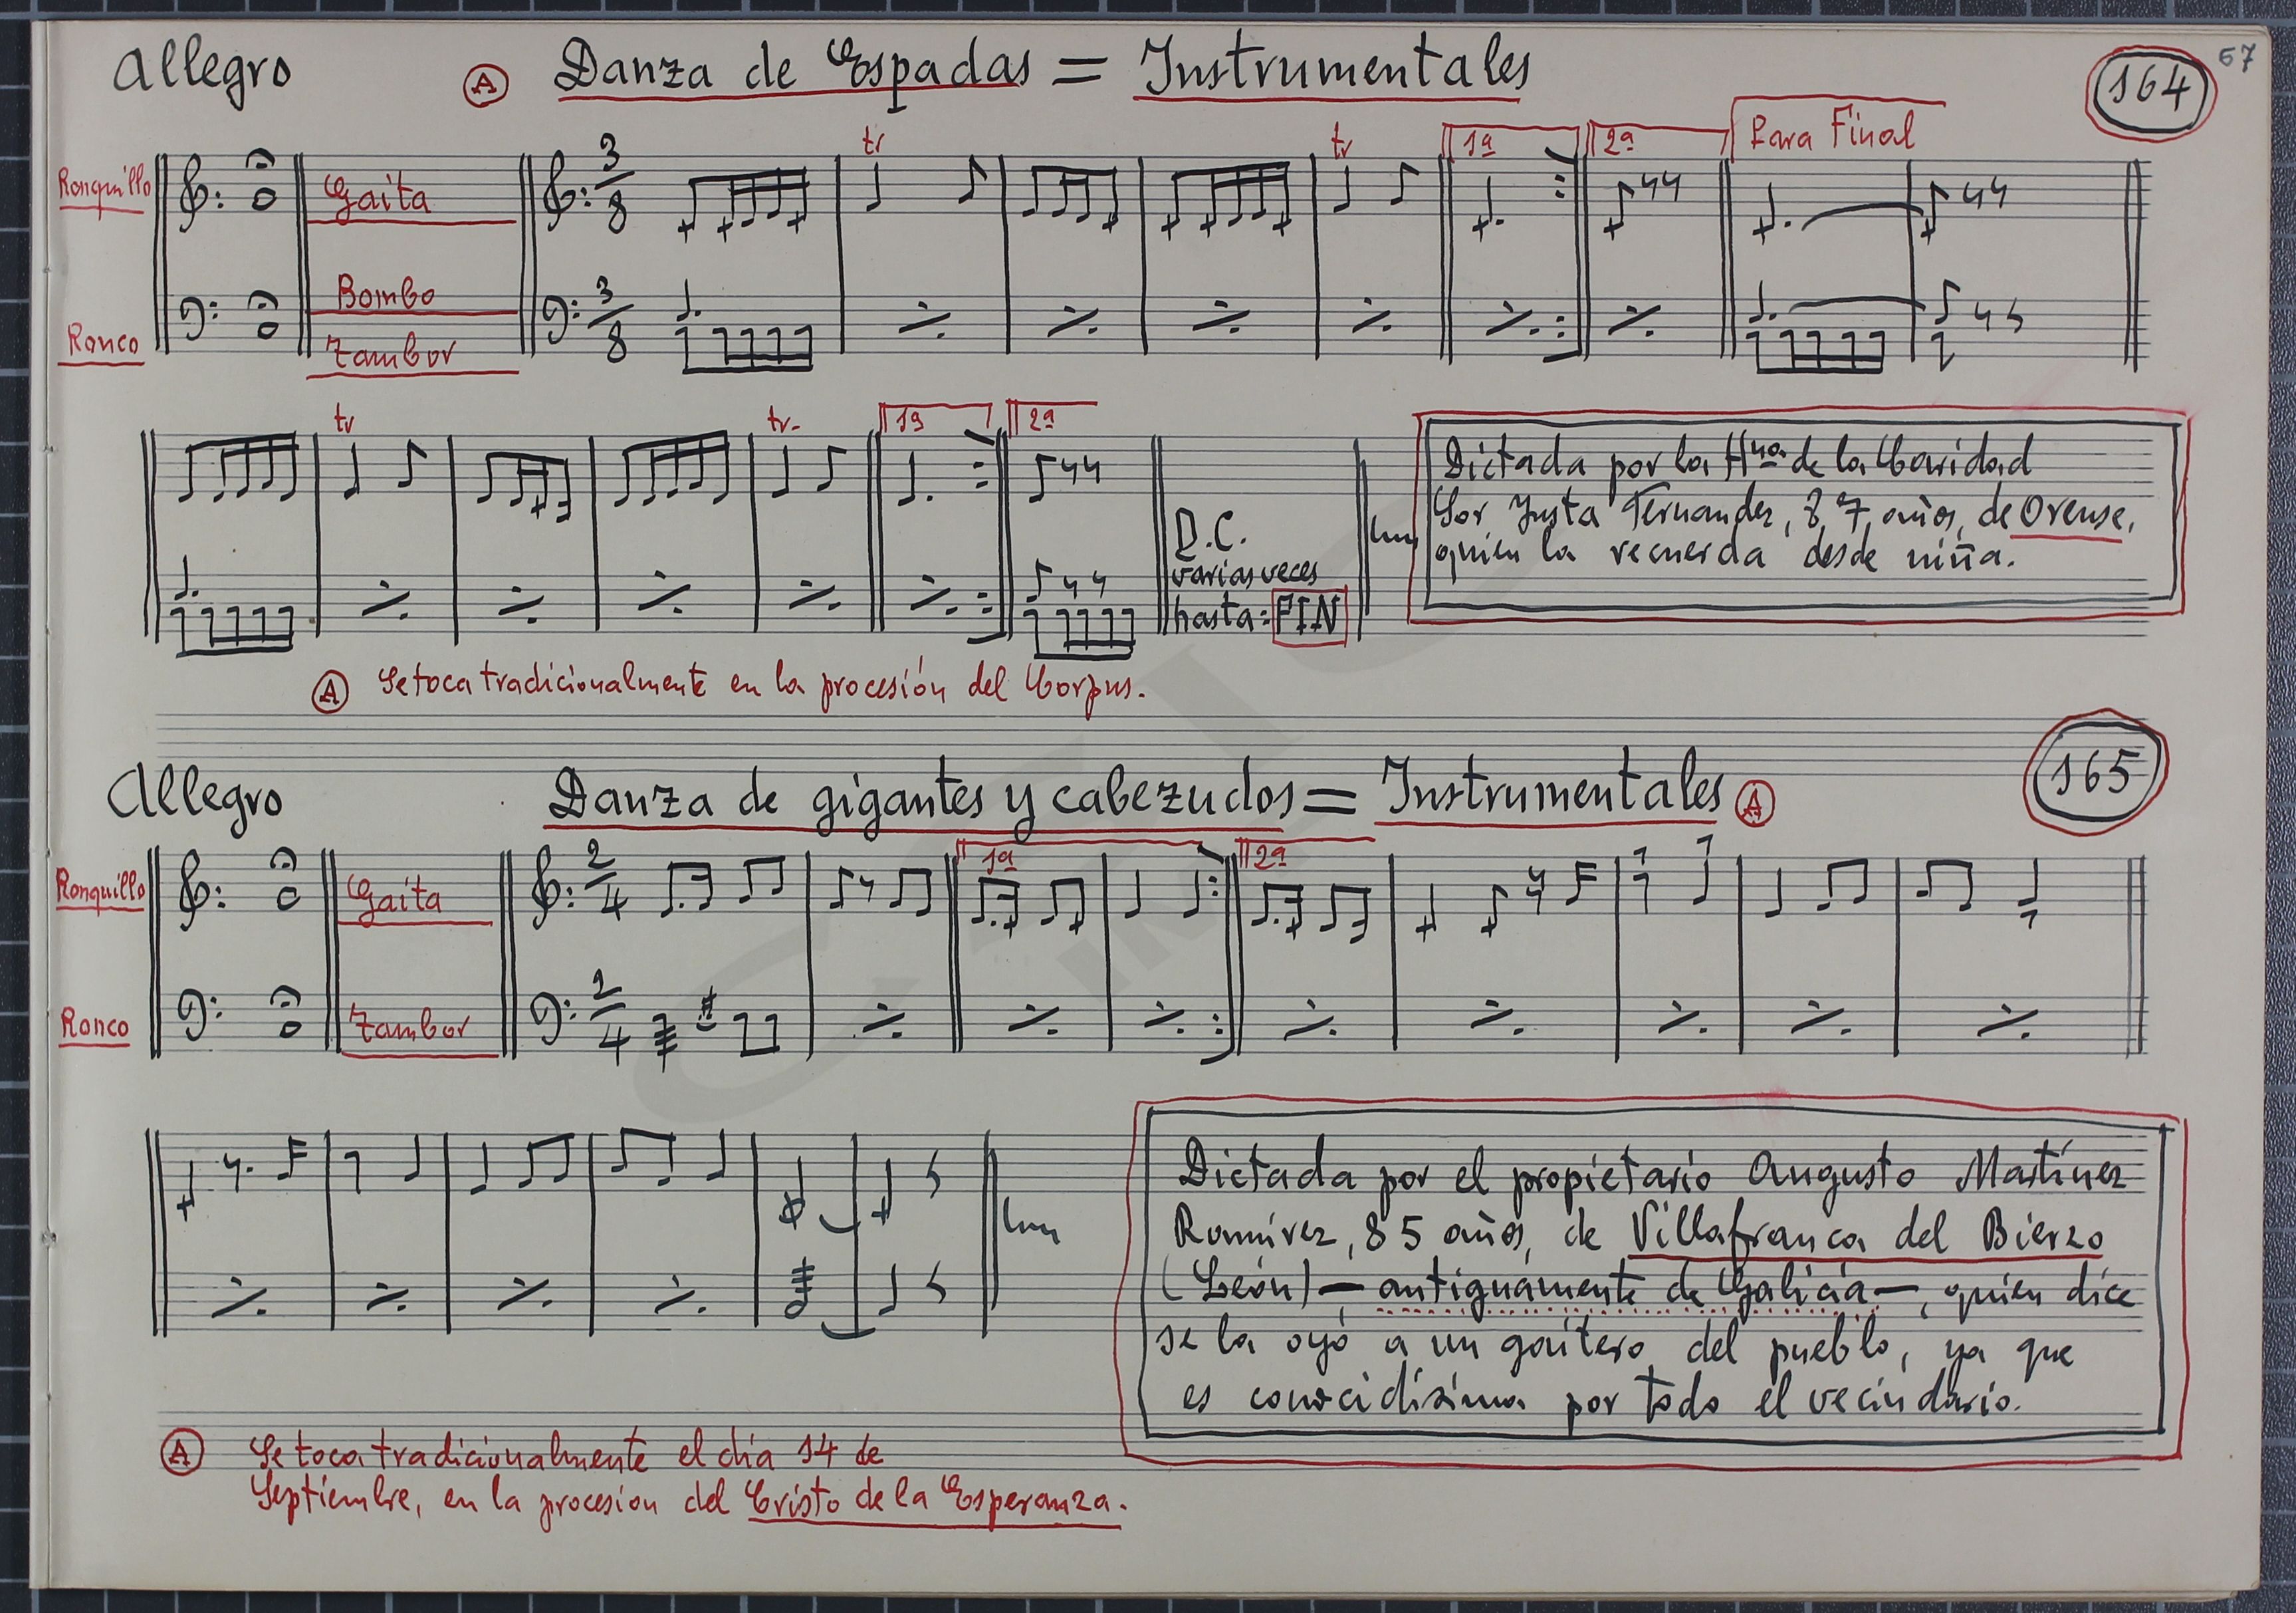 Allegro Ⓐ Danza de Espadas = Instrumentales 164 67
tr tr 1ª 2ª Para Final
Ronquillo Gaita 3/8
Bombo 3/8
Ronco Tambor
tr tr. 1ª 2ª
D.C.
varias veces
hasta: FIN
Dictada por la Hna. de la Caridad
Sor Justa Fernandez, 87 años, de Orense,
quien la recuerda desde niña.
Ⓐ Se toca tradicionalmente en la procesión del Corpus.
Allegro Danza de gigantes y cabezudos = Instrumentales Ⓐ 165
1ª 2ª
Ronquillo Gaita 2/4
Ronco Tambor 2/4
Dictada por el propietario Augusto Martínez
Ramírez, 85 años, de Villafranca del Bierzo
(León) — antiguamente de Galicia —, quien dice
se la oyó a un gaitero del pueblo, ya que
es conocidísima por todo el vecindario.
Ⓐ Se toca tradicionalmente el día 14 de
Septiembre, en la procesion del Cristo de la Esperanza.